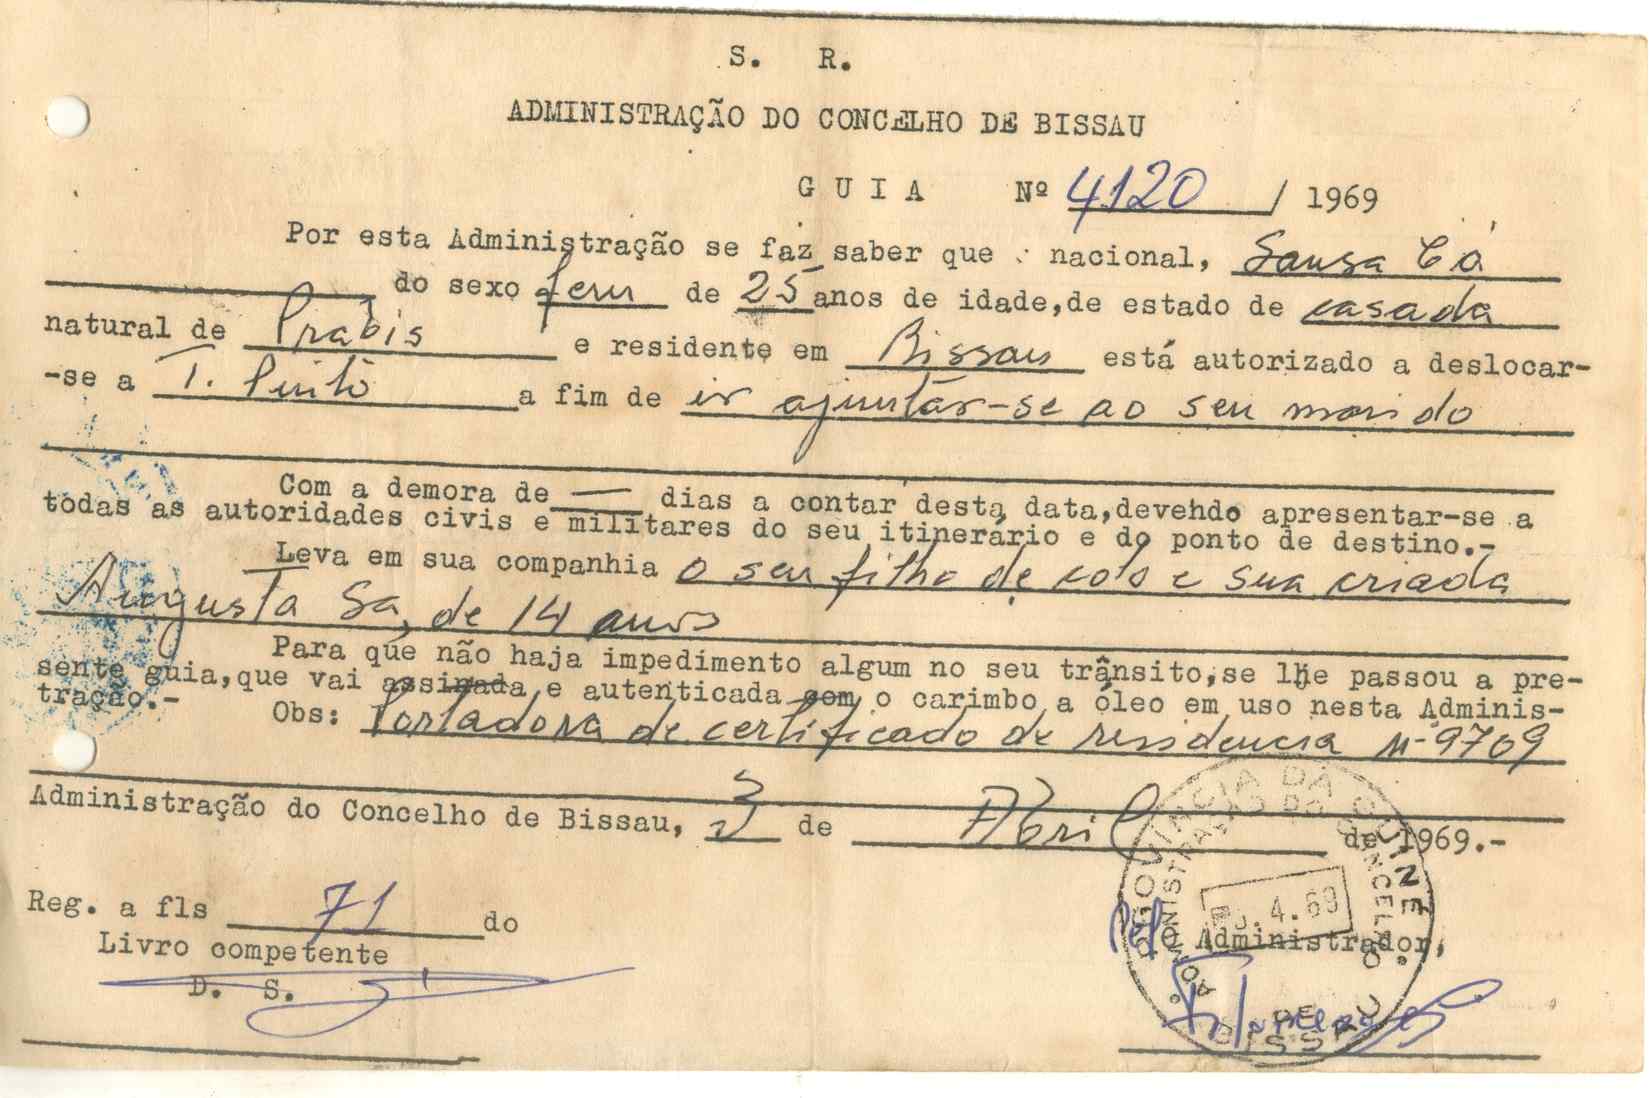 S. R.
ADMINISTRAÇÃO DO CONCELHO DE BISSAU
GUIA Nº 4120 / 1969
Por esta Administração se faz saber que nacional, Sousa Cá
do sexo fem de 25 anos de idade, de estado de casada
natural de Prabis e residente em Bissau está autorizado a deslocar-
-se a T. Pinto a fim de ir ajuntar-se ao seu marido
Com a demora de — dias a contar desta data, devendo apresentar-se a
todas as autoridades civis e militares do seu itinerário e do ponto de destino.-
Leva em sua companhia o seu filho de colo e sua criada
Augusta Sá, de 14 anos
Para que não haja impedimento algum no seu trânsito, se lhe passou a pre-
sente guia, que vai assinada e autenticada com o carimbo a óleo em uso nesta Adminis-
tração.-
Obs: Portadora de certificado de residencia nº 9709
Administração do Concelho de Bissau, 3 de Abril de 1969.-
Reg. a fls 71 do
Livro competente
D. S.
Pel O Administrador,
PROVINCIA DA GUINÉ
ADMINISTRAÇÃO DO CONCELHO
DE
BISSAU
.4.69